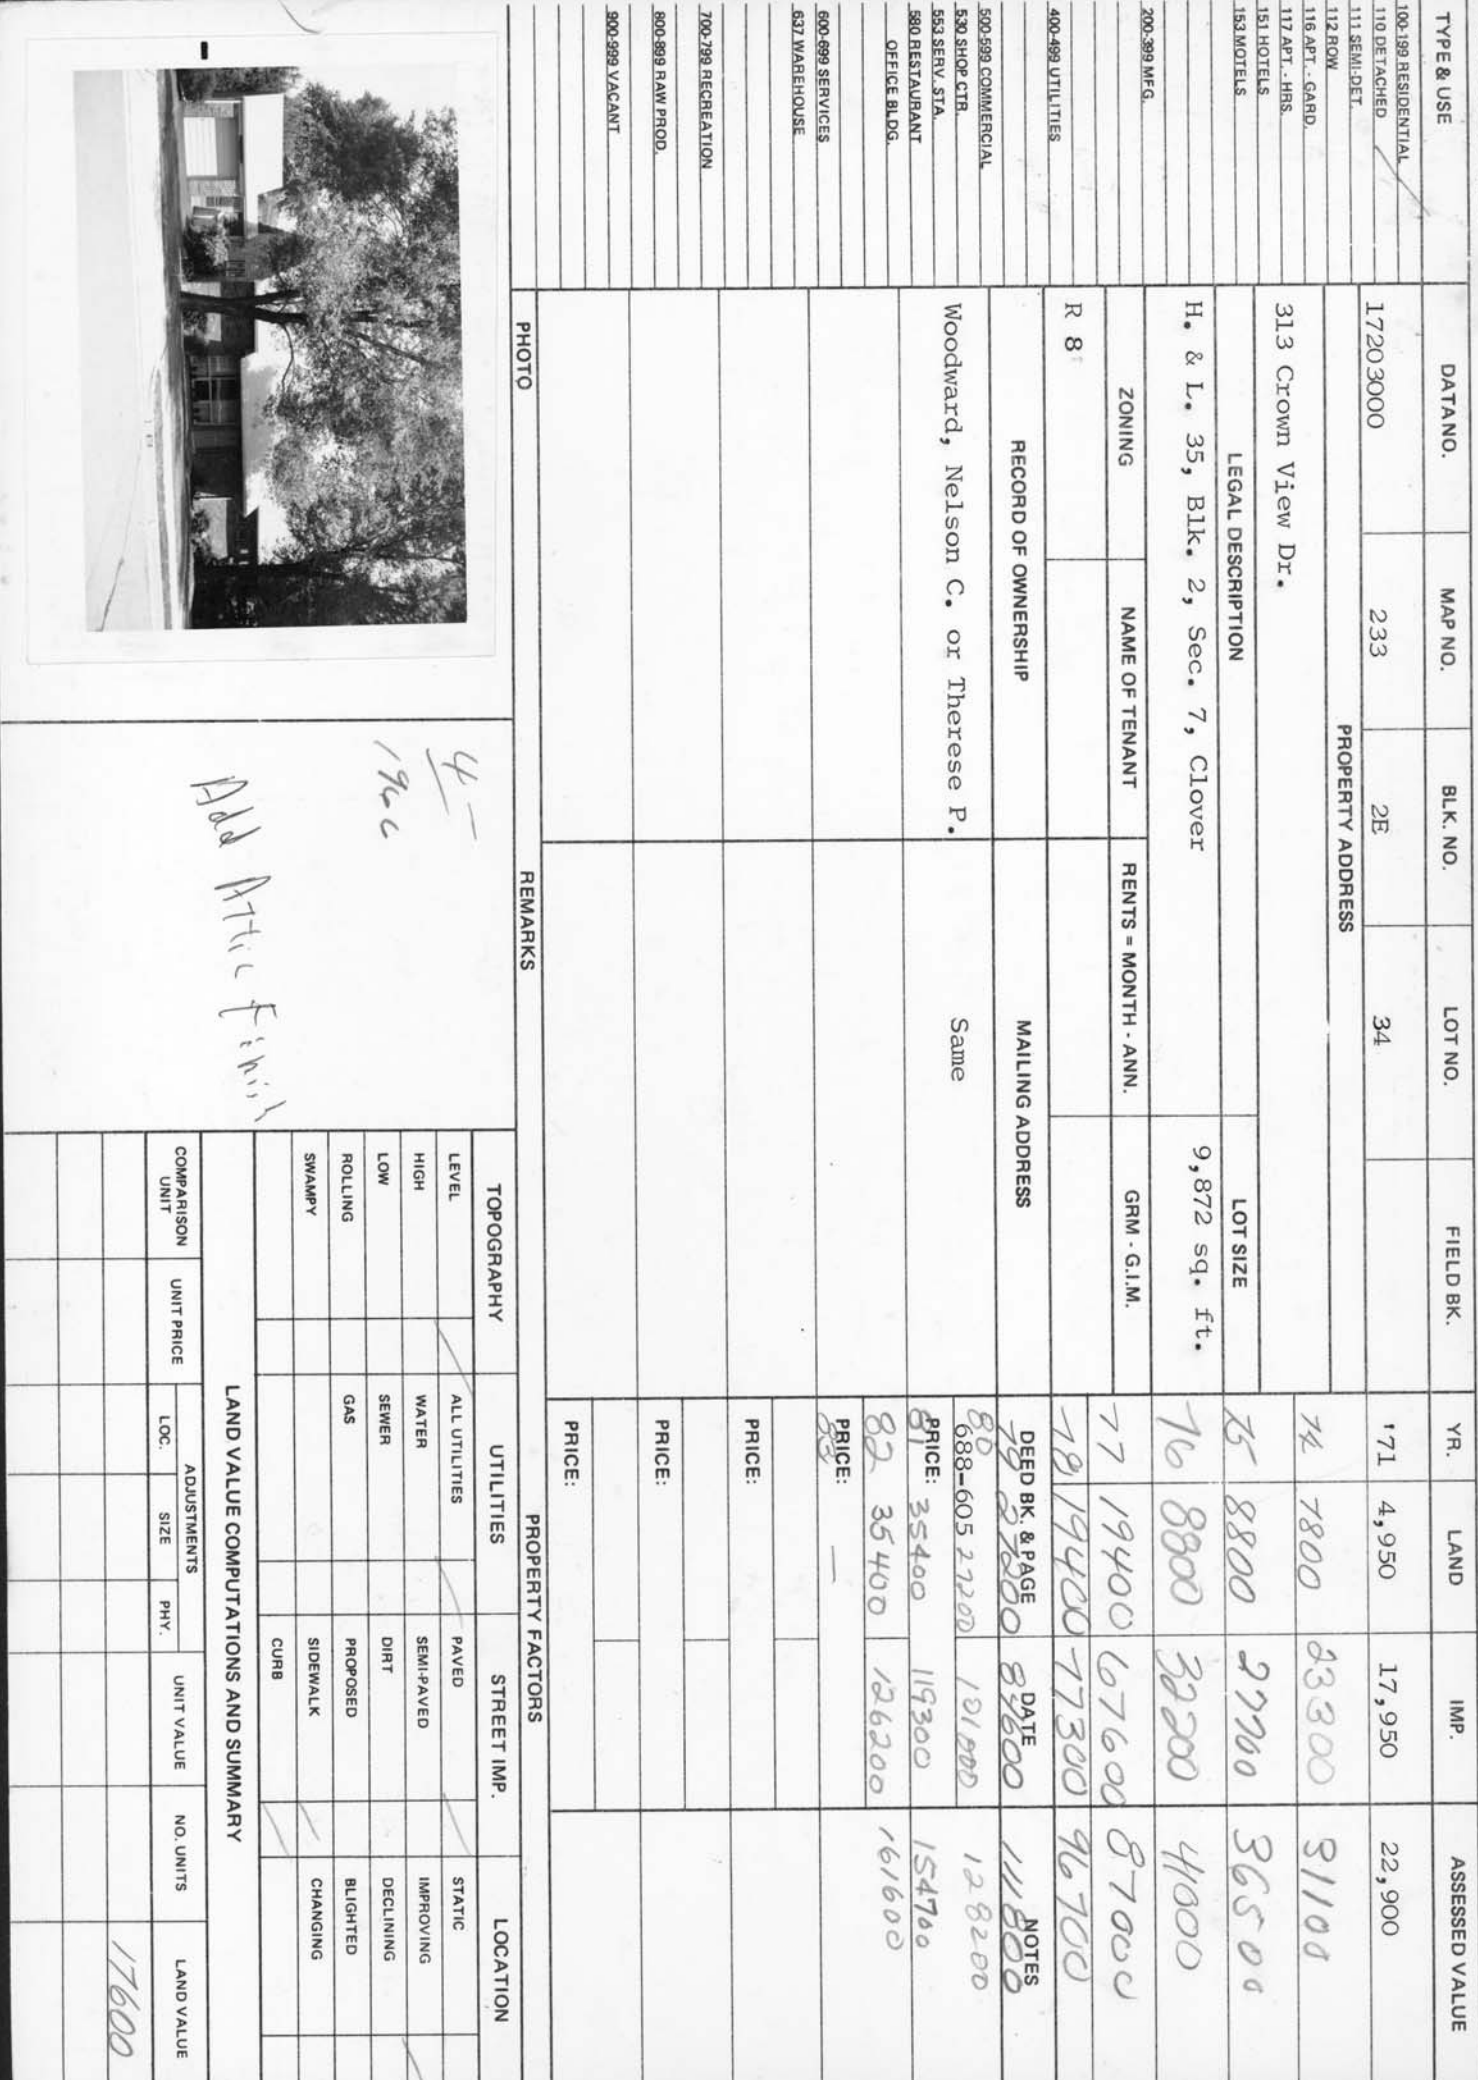 TYPE & USE
100-199 RESIDENTIAL
110 DETACHED
111 SEMI-DET.
112 ROW
116 APT. - GARD.
117 APT. - HRS.
151 HOTELS
153 MOTELS
200-399 MFG.
400-499 UTILITIES
500-599 COMMERCIAL
530 SHOP CTR.
553 SERV. STA.
580 RESTAURANT
OFFICE BLDG.
600-699 SERVICES
637 WAREHOUSE
700-799 RECREATION
800-899 RAW PROD.
900-999 VACANT
DATA NO. MAP NO. BLK. NO. LOT NO. FIELD BK.
17203000 233 2E 34
PROPERTY ADDRESS
313 Crown View Dr.
LEGAL DESCRIPTION LOT SIZE
H. & L. 35, Blk. 2, Sec. 7, Clover 9,872 sq. ft.
ZONING NAME OF TENANT RENTS = MONTH - ANN. GRM - G.I.M.
R 8
RECORD OF OWNERSHIP MAILING ADDRESS DEED BK. & PAGE DATE NOTES
Woodward, Nelson C. or Therese P. Same 688-605
YR. LAND IMP. ASSESSED VALUE
'71 4,950 17,950 22,900
74 7800 23300 31100
75 8800 27700 36500
76 8800 32200 41000
77 19400 67600 87000
78 19400 77300 96700
79 27200 84600 111800
80 27200 101000 128200
PRICE:
81 35400 119300 154700
82 35400 126200 161600
PRICE:
83 —
PRICE:
PRICE:
PRICE:
PHOTO REMARKS PROPERTY FACTORS
4-
Add Attic Finish
TOPOGRAPHY UTILITIES STREET IMP. LOCATION
LEVEL ALL UTILITIES PAVED STATIC
HIGH WATER SEMI-PAVED IMPROVING
LOW SEWER DIRT DECLINING
ROLLING GAS PROPOSED BLIGHTED
SWAMPY SIDEWALK CHANGING
CURB
LAND VALUE COMPUTATIONS AND SUMMARY
COMPARISON UNIT UNIT PRICE ADJUSTMENTS UNIT VALUE NO. UNITS LAND VALUE
LOC. SIZE PHY.
17600